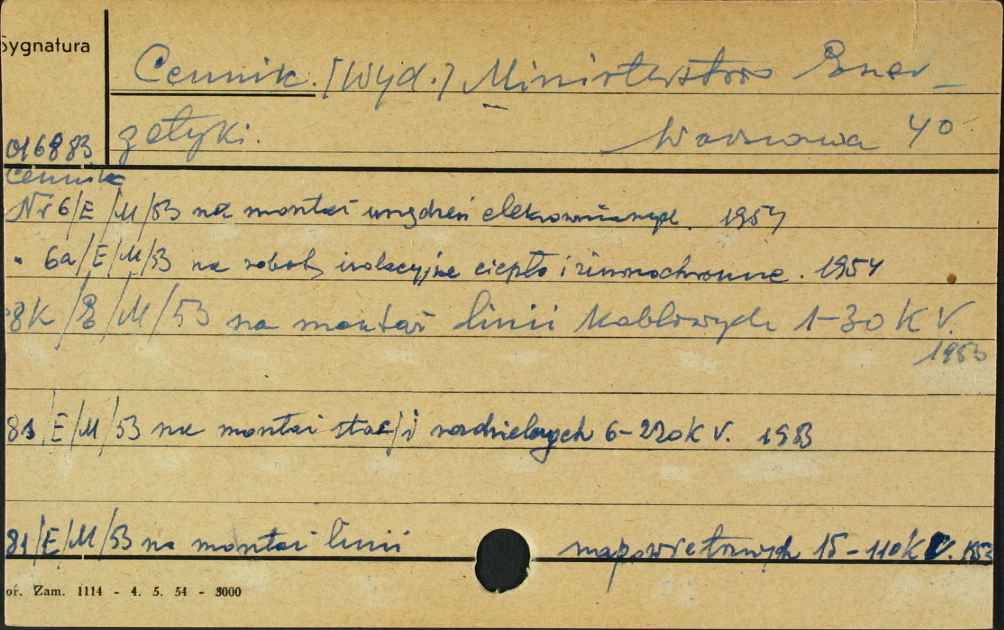 Sygnatura
Cennik. [Wyd.] Ministerstwo Ener-
getyki. Warszawa 40
016883
Cennik
Nr 6/E/M/53 na montaż urządzeń elektrownianych. 1954
" 6a/E/M/53 na roboty izolacyjne ciepło i zimnochronne. 1954
8K/E/M/53 na montaż linii kablowych 1-30 KV.
1953
8s/E/M/53 na montaż stacji rozdzielczych 6-220 KV. 1953
8l/E/M/53 na montaż linii napowietrznych 15-110 KV. 1953
oř. Zam. 1114 - 4. 5. 54 - 3000